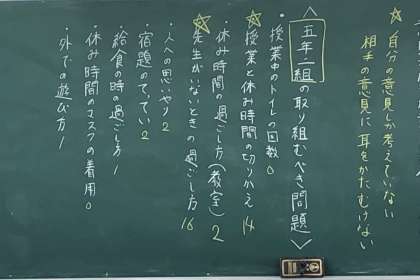 自分の意見しか考えていない
相手の意見に耳をかたむけない
〈五年二組の取り組むべき問題〉
・授業中のトイレの回数0
・授業と休み時間の切りかえ14
・休み時間の過ごし方(教室)2
・先生がいないときの過ごし方16
・人への思いやり2
・宿題のてってい2
・給食の時の過ごし方1
・休み時間のマスクの着用0
・外での遊び方1